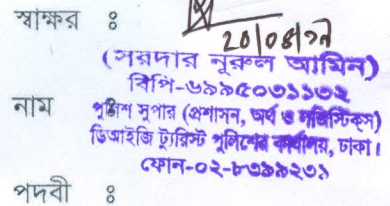 স্বাক্ষর ঃ
২০/০৪/২৭
(সরদার নূরুল আমিন)
বিপি-৬৯৯৫০৩১১৩২
নাম ঃ
পুলিশ সুপার (প্রশাসন, অর্থ ও লজিস্টিকস)
ডিআইজি ট্যুরিস্ট পুলিশের কার্যালয়, ঢাকা।
ফোন-০২-৮৩৯৯২৩১
পদবী ঃ